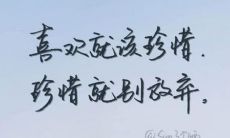 喜欢就该珍惜.
珍惜就别放弃。